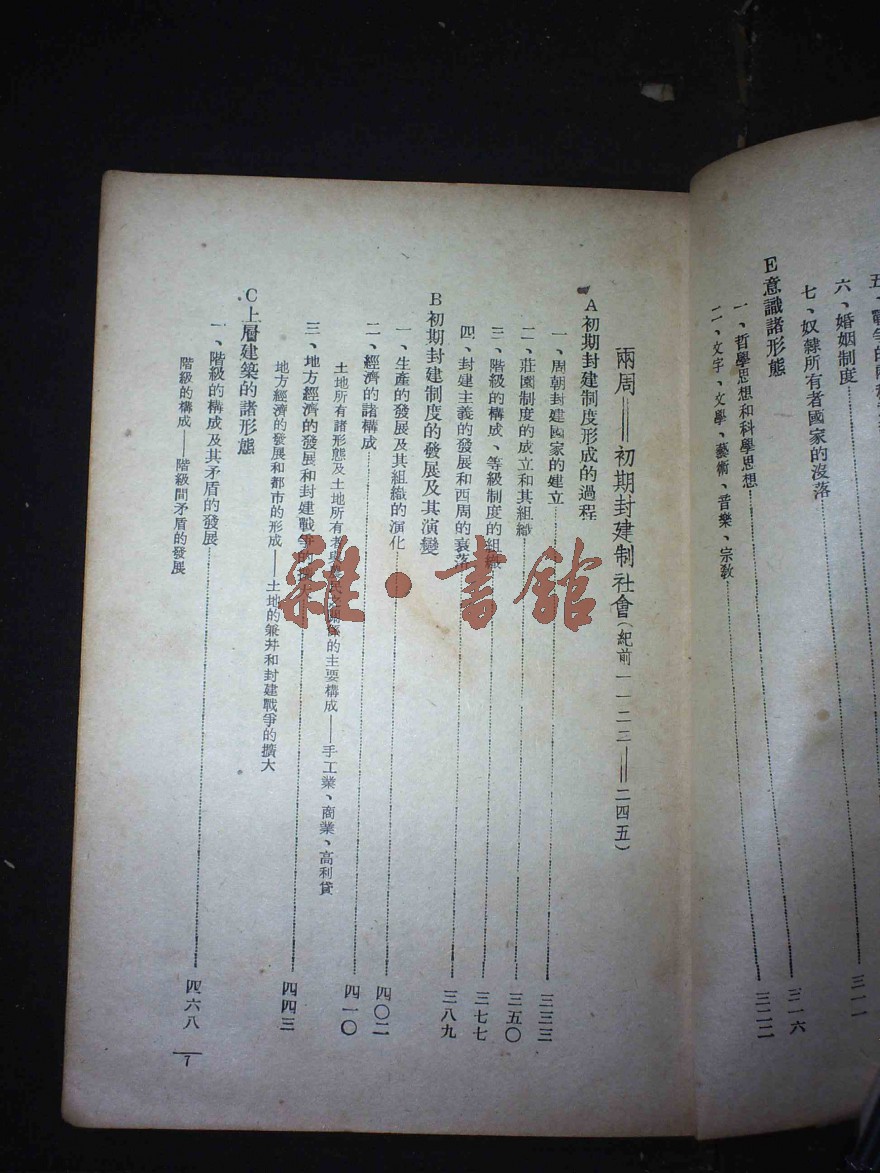 六、婚姻制度
七、奴隸所有者國家的沒落……316
E意識諸形態
一、哲學思想和科學思想
二、文字、文學、藝術、音樂、宗教……三二二
兩周——初期封建制社會(紀前一一二二——二四五)
A初期封建制度形成的過程
一、周朝封建國家的建立……三三三
二、莊園制度的成立和其組織……三五〇
三、階級的構成、等級制度的組織……三七七
四、封建主義的發展和西周的衰落……三八九
B初期封建制度的發展及其演變
一、生產的發展及其組織的演化……四〇二
二、經濟的諸構成……四一〇
土地所有諸形態及土地所有者與農民之關係的主要構成——手工業、商業、高利貸
三、地方經濟的發展和封建戰爭的擴大……四四三
地方經濟的發展和都市的形成——土地的兼并和封建戰爭的擴大
C上層建築的諸形態
一、階級的構成及其矛盾的發展……四六八
階級的構成——階級間矛盾的發展
7
雜·書館